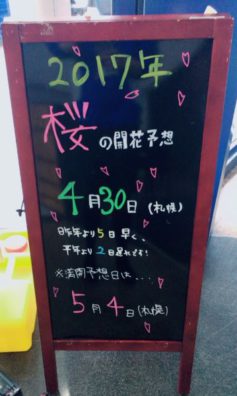 2017年
桜の開花予想
4月30日(札幌)
昨年より5日早く、
平年より2日遅れです!
※満開予想日は...
5月4日(札幌)